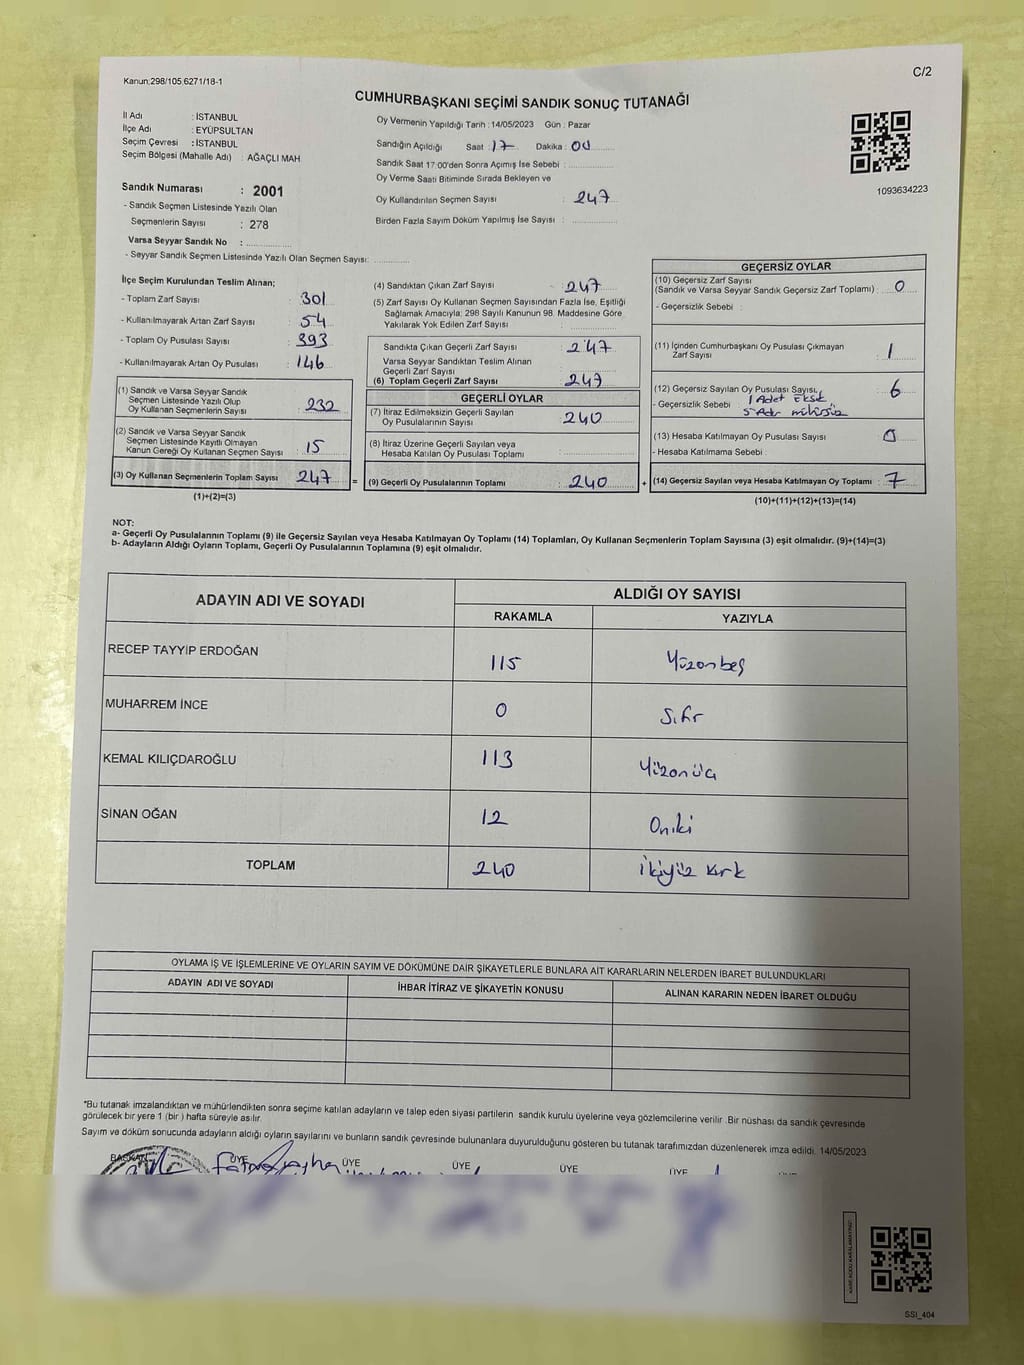 Kanun:298/105,6271/18-1
C/2
CUMHURBAŞKANI SEÇİMİ SANDIK SONUÇ TUTANAĞI
İl Adı : İSTANBUL
İlçe Adı : EYÜPSULTAN
Seçim Çevresi : İSTANBUL
Seçim Bölgesi (Mahalle Adı) : AĞAÇLI MAH
Sandık Numarası : 2001
- Sandık Seçmen Listesinde Yazılı Olan
Seçmenlerin Sayısı : 278
Varsa Seyyar Sandık No : ..............
- Seyyar Sandık Seçmen Listesinde Yazılı Olan Seçmen Sayısı: ............
Oy Vermenin Yapıldığı Tarih : 14/05/2023 Gün : Pazar
Sandığın Açıldığı Saat : 17 Dakika : 00
Sandık Saat 17:00'den Sonra Açımış İse Sebebi : ..............
Oy Verme Saati Bitiminde Sırada Bekleyen ve
Oy Kullandırılan Seçmen Sayısı : 247
Birden Fazla Sayım Döküm Yapılmış İse Sayısı : ..............
1093634223
İlçe Seçim Kurulundan Teslim Alınan;
- Toplam Zarf Sayısı : 301
- Kullanılmayarak Artan Zarf Sayısı : 54
- Toplam Oy Pusulası Sayısı : 393
- Kullanılmayarak Artan Oy Pusulası : 146
(1) Sandık ve Varsa Seyyar Sandık
Seçmen Listesinde Yazılı Olup
Oy Kullanan Seçmenlerin Sayısı : 232
(2) Sandık ve Varsa Seyyar Sandık
Seçmen Listesinde Kayıtlı Olmayan
Kanun Gereği Oy Kullanan Seçmen Sayısı : 15
(3) Oy Kullanan Seçmenlerin Toplam Sayısı : 247 =
(1)+(2)=(3)
(4) Sandıktan Çıkan Zarf Sayısı : 247
(5) Zarf Sayısı Oy Kullanan Seçmen Sayısından Fazla İse, Eşitliği
Sağlamak Amacıyla; 298 Sayılı Kanunun 98. Maddesine Göre
Yakılarak Yok Edilen Zarf Sayısı : ..............
Sandıkta Çıkan Geçerli Zarf Sayısı : 247
Varsa Seyyar Sandıktan Teslim Alınan
Geçerli Zarf Sayısı : ..............
(6) Toplam Geçerli Zarf Sayısı 247
GEÇERLİ OYLAR
(7) İtiraz Edilmeksizin Geçerli Sayılan
Oy Pusulalarının Sayısı : 240
(8) İtiraz Üzerine Geçerli Sayılan veya
Hesaba Katılan Oy Pusulası Toplamı : ..............
(9) Geçerli Oy Pusulalarının Toplamı : 240 +
GEÇERSİZ OYLAR
(10) Geçersiz Zarf Sayısı
(Sandık ve Varsa Seyyar Sandık Geçersiz Zarf Toplamı) : 0
- Geçersizlik Sebebi :
(11) İçinden Cumhurbaşkanı Oy Pusulası Çıkmayan
Zarf Sayısı : 1
(12) Geçersiz Sayılan Oy Pusulası Sayısı : 6
- Geçersizlik Sebebi : 1 Adet Eksik
5 Adet mühürsüz
(13) Hesaba Katılmayan Oy Pusulası Sayısı : 0
- Hesaba Katılmama Sebebi :
(14) Geçersiz Sayılan veya Hesaba Katılmayan Oy Toplamı : 7
(10)+(11)+(12)+(13)=(14)
NOT:
a- Geçerli Oy Pusulalarının Toplamı (9) ile Geçersiz Sayılan veya Hesaba Katılmayan Oy Toplamı (14) Toplamları, Oy Kullanan Seçmenlerin Toplam Sayısına (3) eşit olmalıdır. (9)+(14)=(3)
b- Adayların Aldığı Oyların Toplamı, Geçerli Oy Pusulalarının Toplamına (9) eşit olmalıdır.
ADAYIN ADI VE SOYADI ALDIĞI OY SAYISI
RAKAMLA YAZIYLA
RECEP TAYYİP ERDOĞAN 115 Yüzonbeş
MUHARREM İNCE 0 Sıfır
KEMAL KILIÇDAROĞLU 113 Yüzonüç
SİNAN OĞAN 12 Oniki
TOPLAM 240 İkiyüz kırk
OYLAMA İŞ VE İŞLEMLERİNE VE OYLARIN SAYIM VE DÖKÜMÜNE DAİR ŞİKAYETLERLE BUNLARA AİT KARARLARIN NELERDEN İBARET BULUNDUKLARI
ADAYIN ADI VE SOYADI İHBAR İTİRAZ VE ŞİKAYETİN KONUSU ALINAN KARARIN NEDEN İBARET OLDUĞU
*Bu tutanak imzalandıktan ve mühürlendikten sonra seçime katılan adayların ve talep eden siyasi partilerin sandık kurulu üyelerine veya gözlemcilerine verilir. Bir nüshası da sandık çevresinde
görülecek bir yere 1 (bir ) hafta süreyle asılır.
Sayım ve döküm sonucunda adayların aldığı oyların sayılarını ve bunların sandık çevresinde bulunanlara duyurulduğunu gösteren bu tutanak tarafımızdan düzenlenerek imza edildi. 14/05/2023
BAŞKAN ÜYE ÜYE ÜYE ÜYE ÜYE
SSI_404